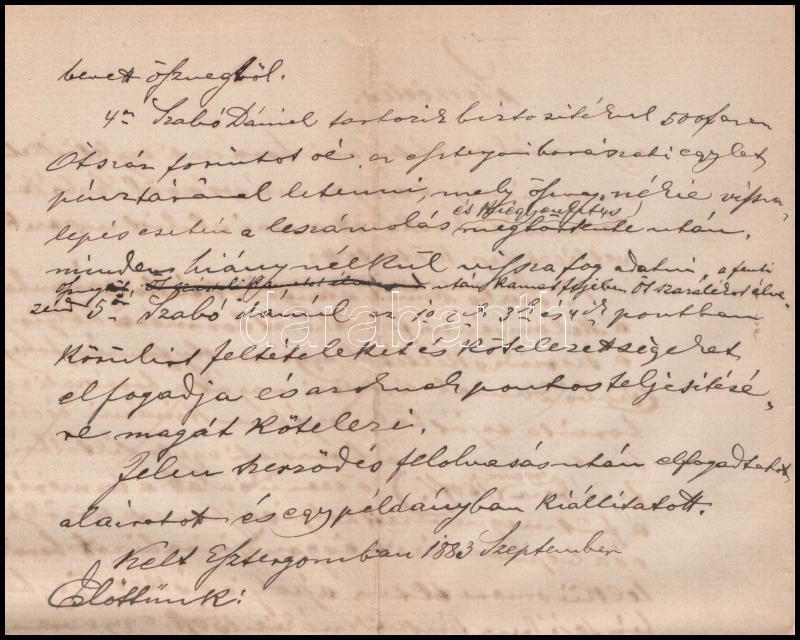 bevett öszvegből.
4er Szabó Dániel tartozik biztositékul 500 azaz
Ötszáz forintot oé. az esztergomi borászati egylet
pénztáránál letenni, mely öszveg nékie vissza
lepés esetén a leszámolás és kiegyenlités megtörténte után,
minden hiány nélkül vissza fog adatni, a fenti
öszveg után kamat fejében öt százalékot élve-
zend 5ör Szabó Dániel az 1ő 2ik 3ik és 4ik pontban
körülirt feltételeket és kötelezettségeket
elfogadja és azoknak pontos teljesitésé-
re magát kötelezi.
Jelen szerződés felolvasás után elfogadtatott
aláiratott és egy példányban kiállitatott.
Kelt Esztergomban 1883 Szeptember
Előttünk:
darabanth